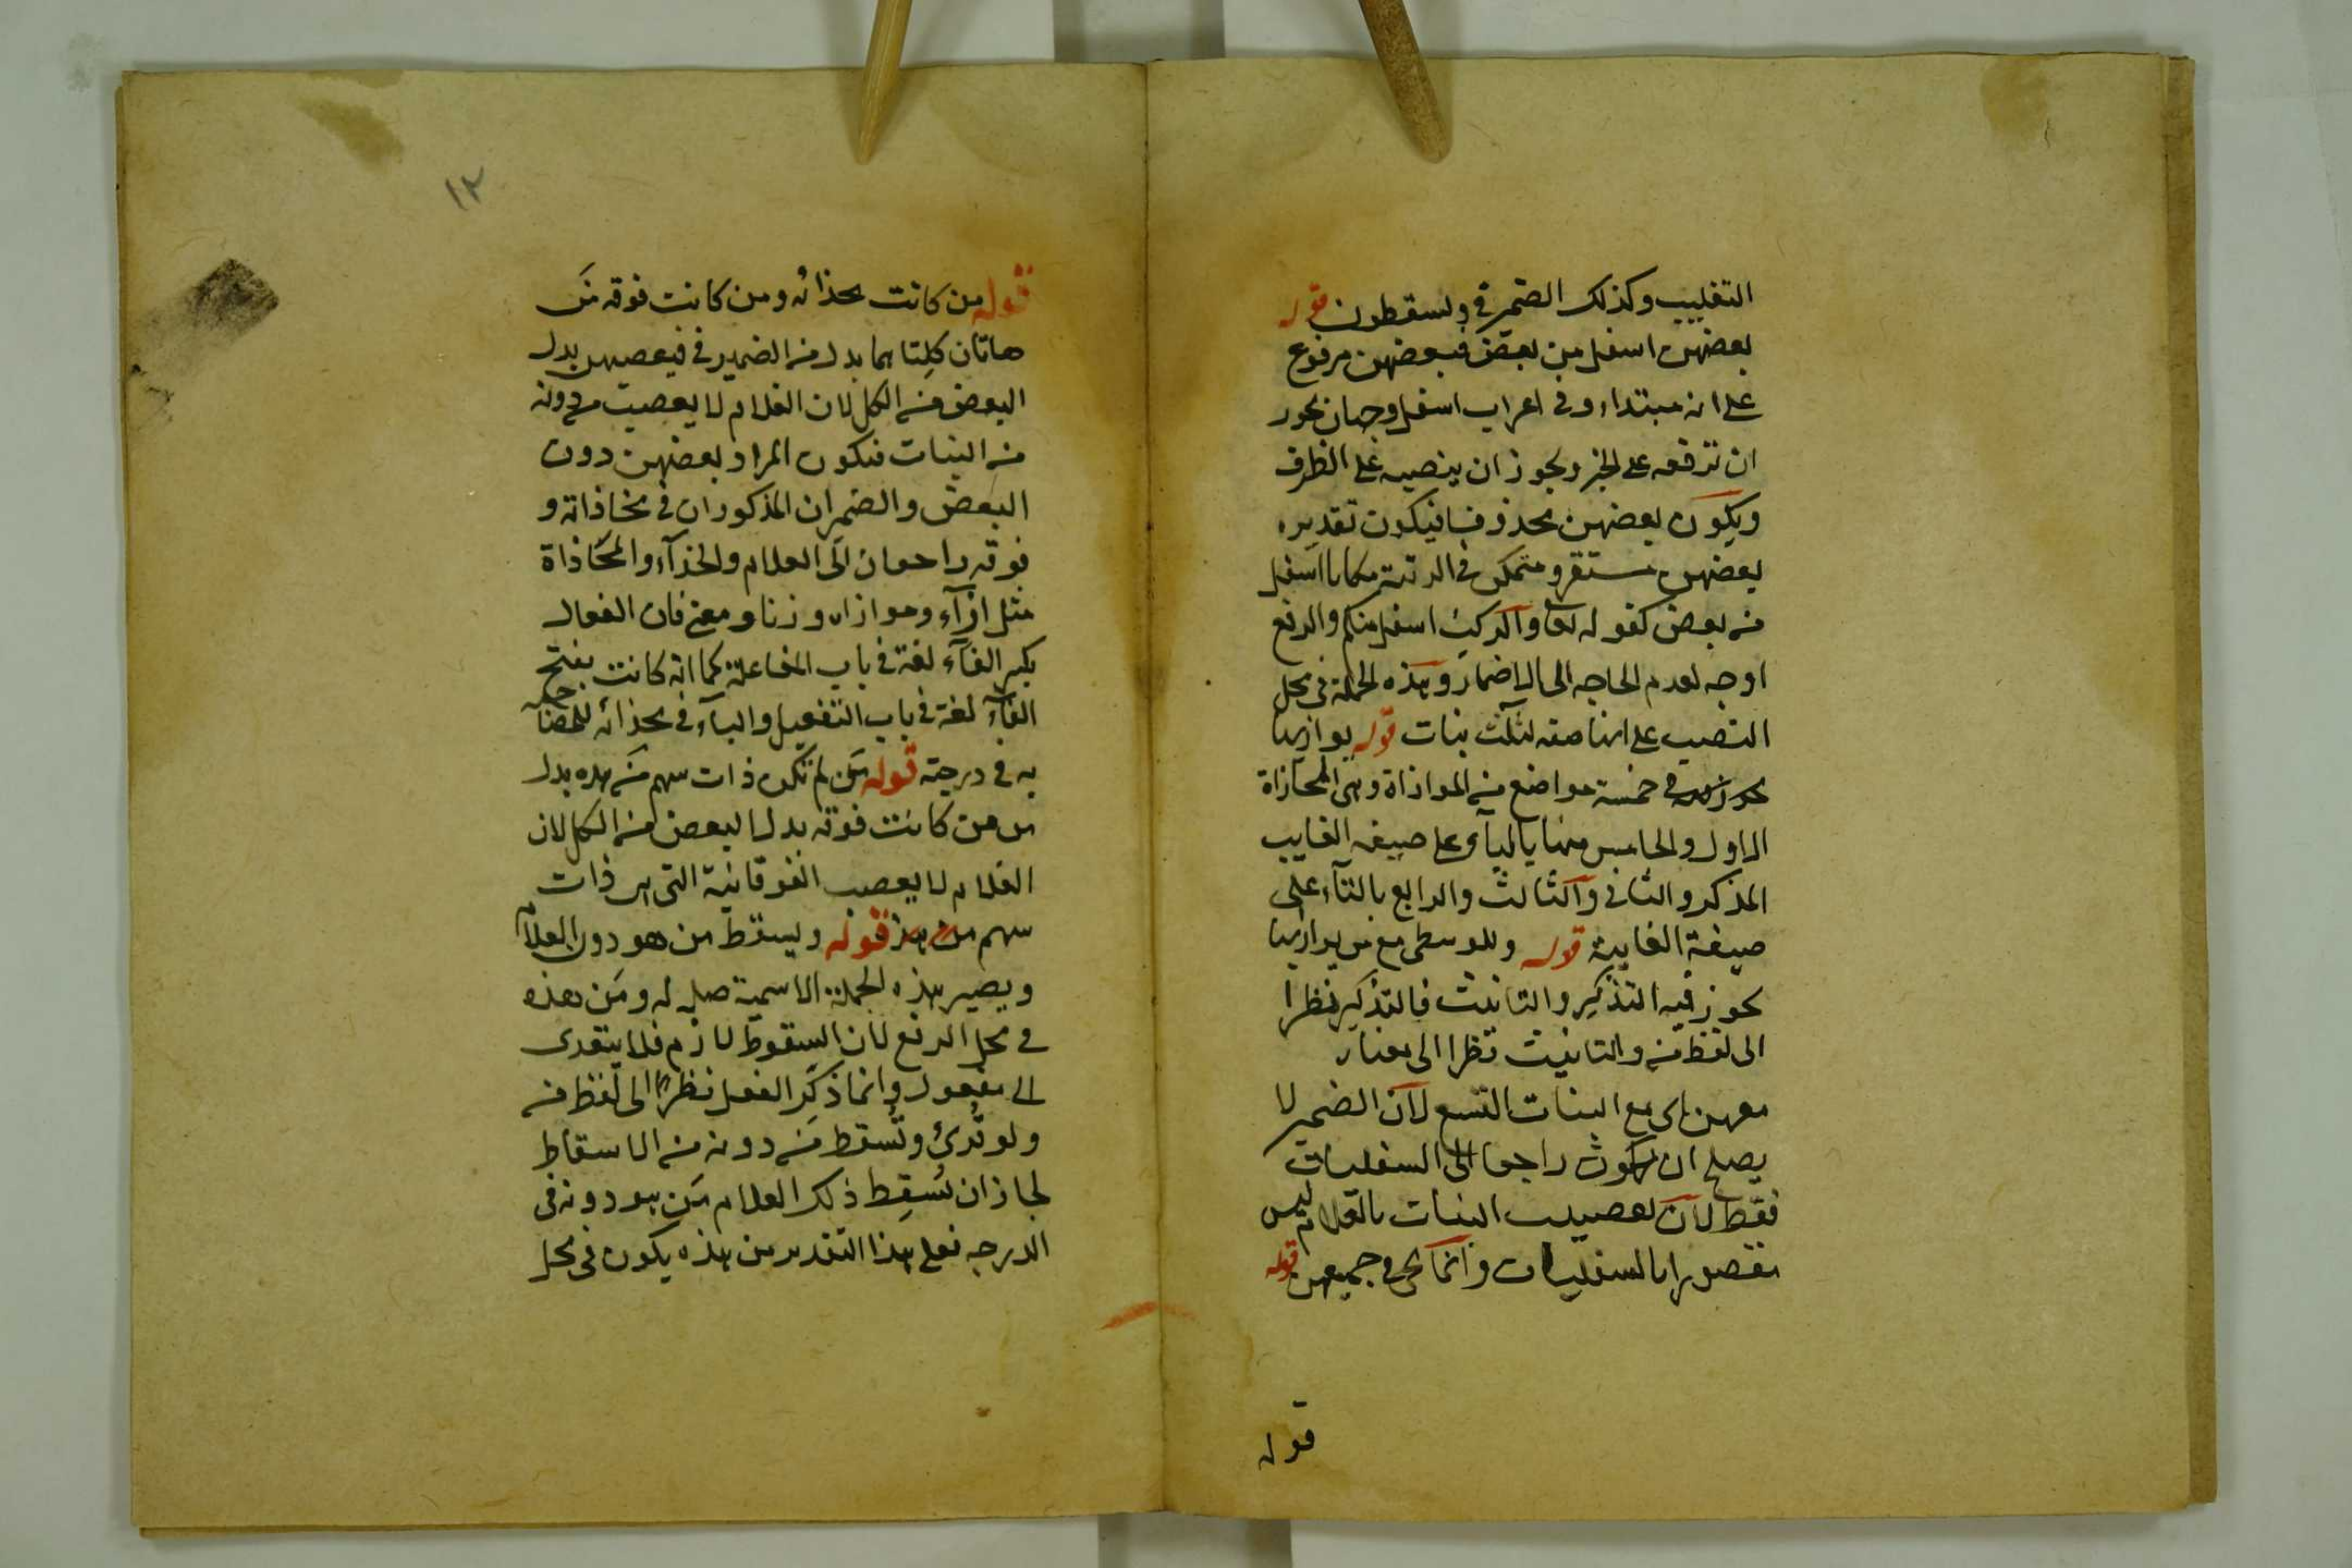 التغليب وكذلك الضمير في ويسقطون قوله
بعضهن اسفل من بعض فبعضهن مرفوع
على انه مبتداء وفي اعراب اسفل وجهان يجوز
ان ترفعه على الخبر ويجوز ان ينصبه على الظرف
ويكون بعضهن محذوفا فيكون تقديره
بعضهن مستقر ومتمكن في الرتبة مكانا اسفل
من بعض كقوله تعا والركب اسفل منكم والرفع
اوجه لعدم الحاجه الى الاضمار وهذه الجملة في محل
النصب على انها صفه لثلث بنات قوله يوازيها
في خمسة مواضع من الموازاة وهي المحازاة
الاول والخامس منها بالياء على صيغه الغايب
المذكر والثاني والثالث والرابع بالتاء على
صيغة الغايبة قوله وللوسطى مع من يوازيها
يجوز فيه التذكير والتانيث فالتذكير نظرا
الى لفظ من والتانيث نظرا الى معناه
معهن اى مع البنات التسع لان الضمير لا
يصلح ان يكون راجعا الى السفليات
فقط لان تعصيب البنات بالغلام ليس
مقصورا بالسفليات وانما يجرى في جميعهن قوله
قوله
١٢
قوله من كانت بحذائه ومن كانت فوقه من
هاتان كلتاهما بدل من الضمير في فيعصبهن بدل
البعض من الكل لان الغلام لا يعصب من دونه
من البنات فيكون المراد بعضهن دون
البعض والضميران المذكوران في محاذاته و
فوقه راجعان الى الغلام والحذاء والمحاذاة
مثل ازاء وموازاه وزنا ومعنى فان الفعال
بكسر الفاء لغة في باب المفاعلة كما انه كانت بفتح
الفاء لغة في باب التفعيل والباء في بحذائه للمصاحبة
به في درجته قوله من لم تكن ذات سهم من هذه بدل
من من كانت فوقه بدل البعض من الكل لان
الغلام لا يعصب الفوقانية التى هي ذات
سهم من هذه قوله ويسقط من هو دون الغلام
ويصير هذه الجملة الاسمية صله له ومن هذه
في محل الرفع لان السقوط لازم فلا يتعدى
الى مفعول وانما ذكر الفعل نظرا الى لفظ من
ولو قرئ وتسقط من دونه من الاسقاط
لجاز ان يسقط ذلك الغلام من هو دونه في
الدرجه فعلى هذا التقدير من هذه يكون في محل